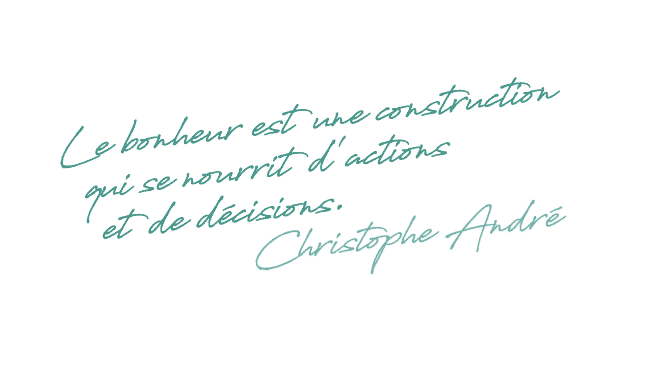 Le bonheur est une construction
qui se nourrit d'actions
et de décisions.
Christophe André